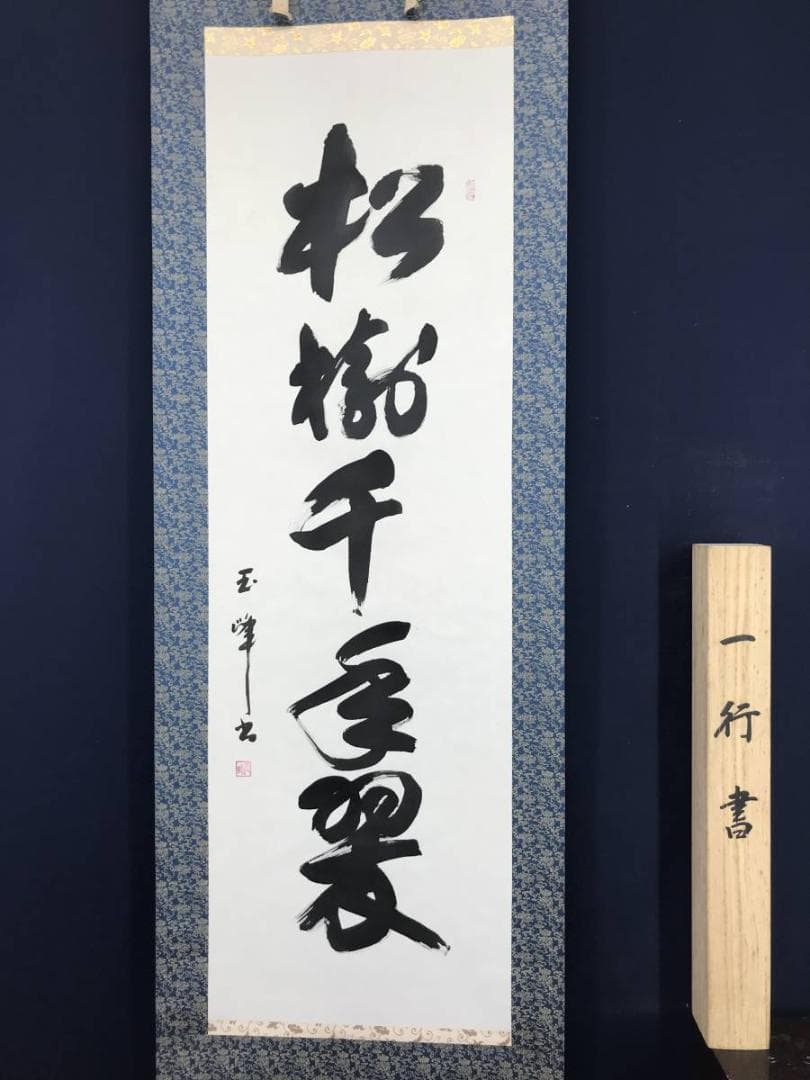 松樹千年翠
玉峰書
一行書